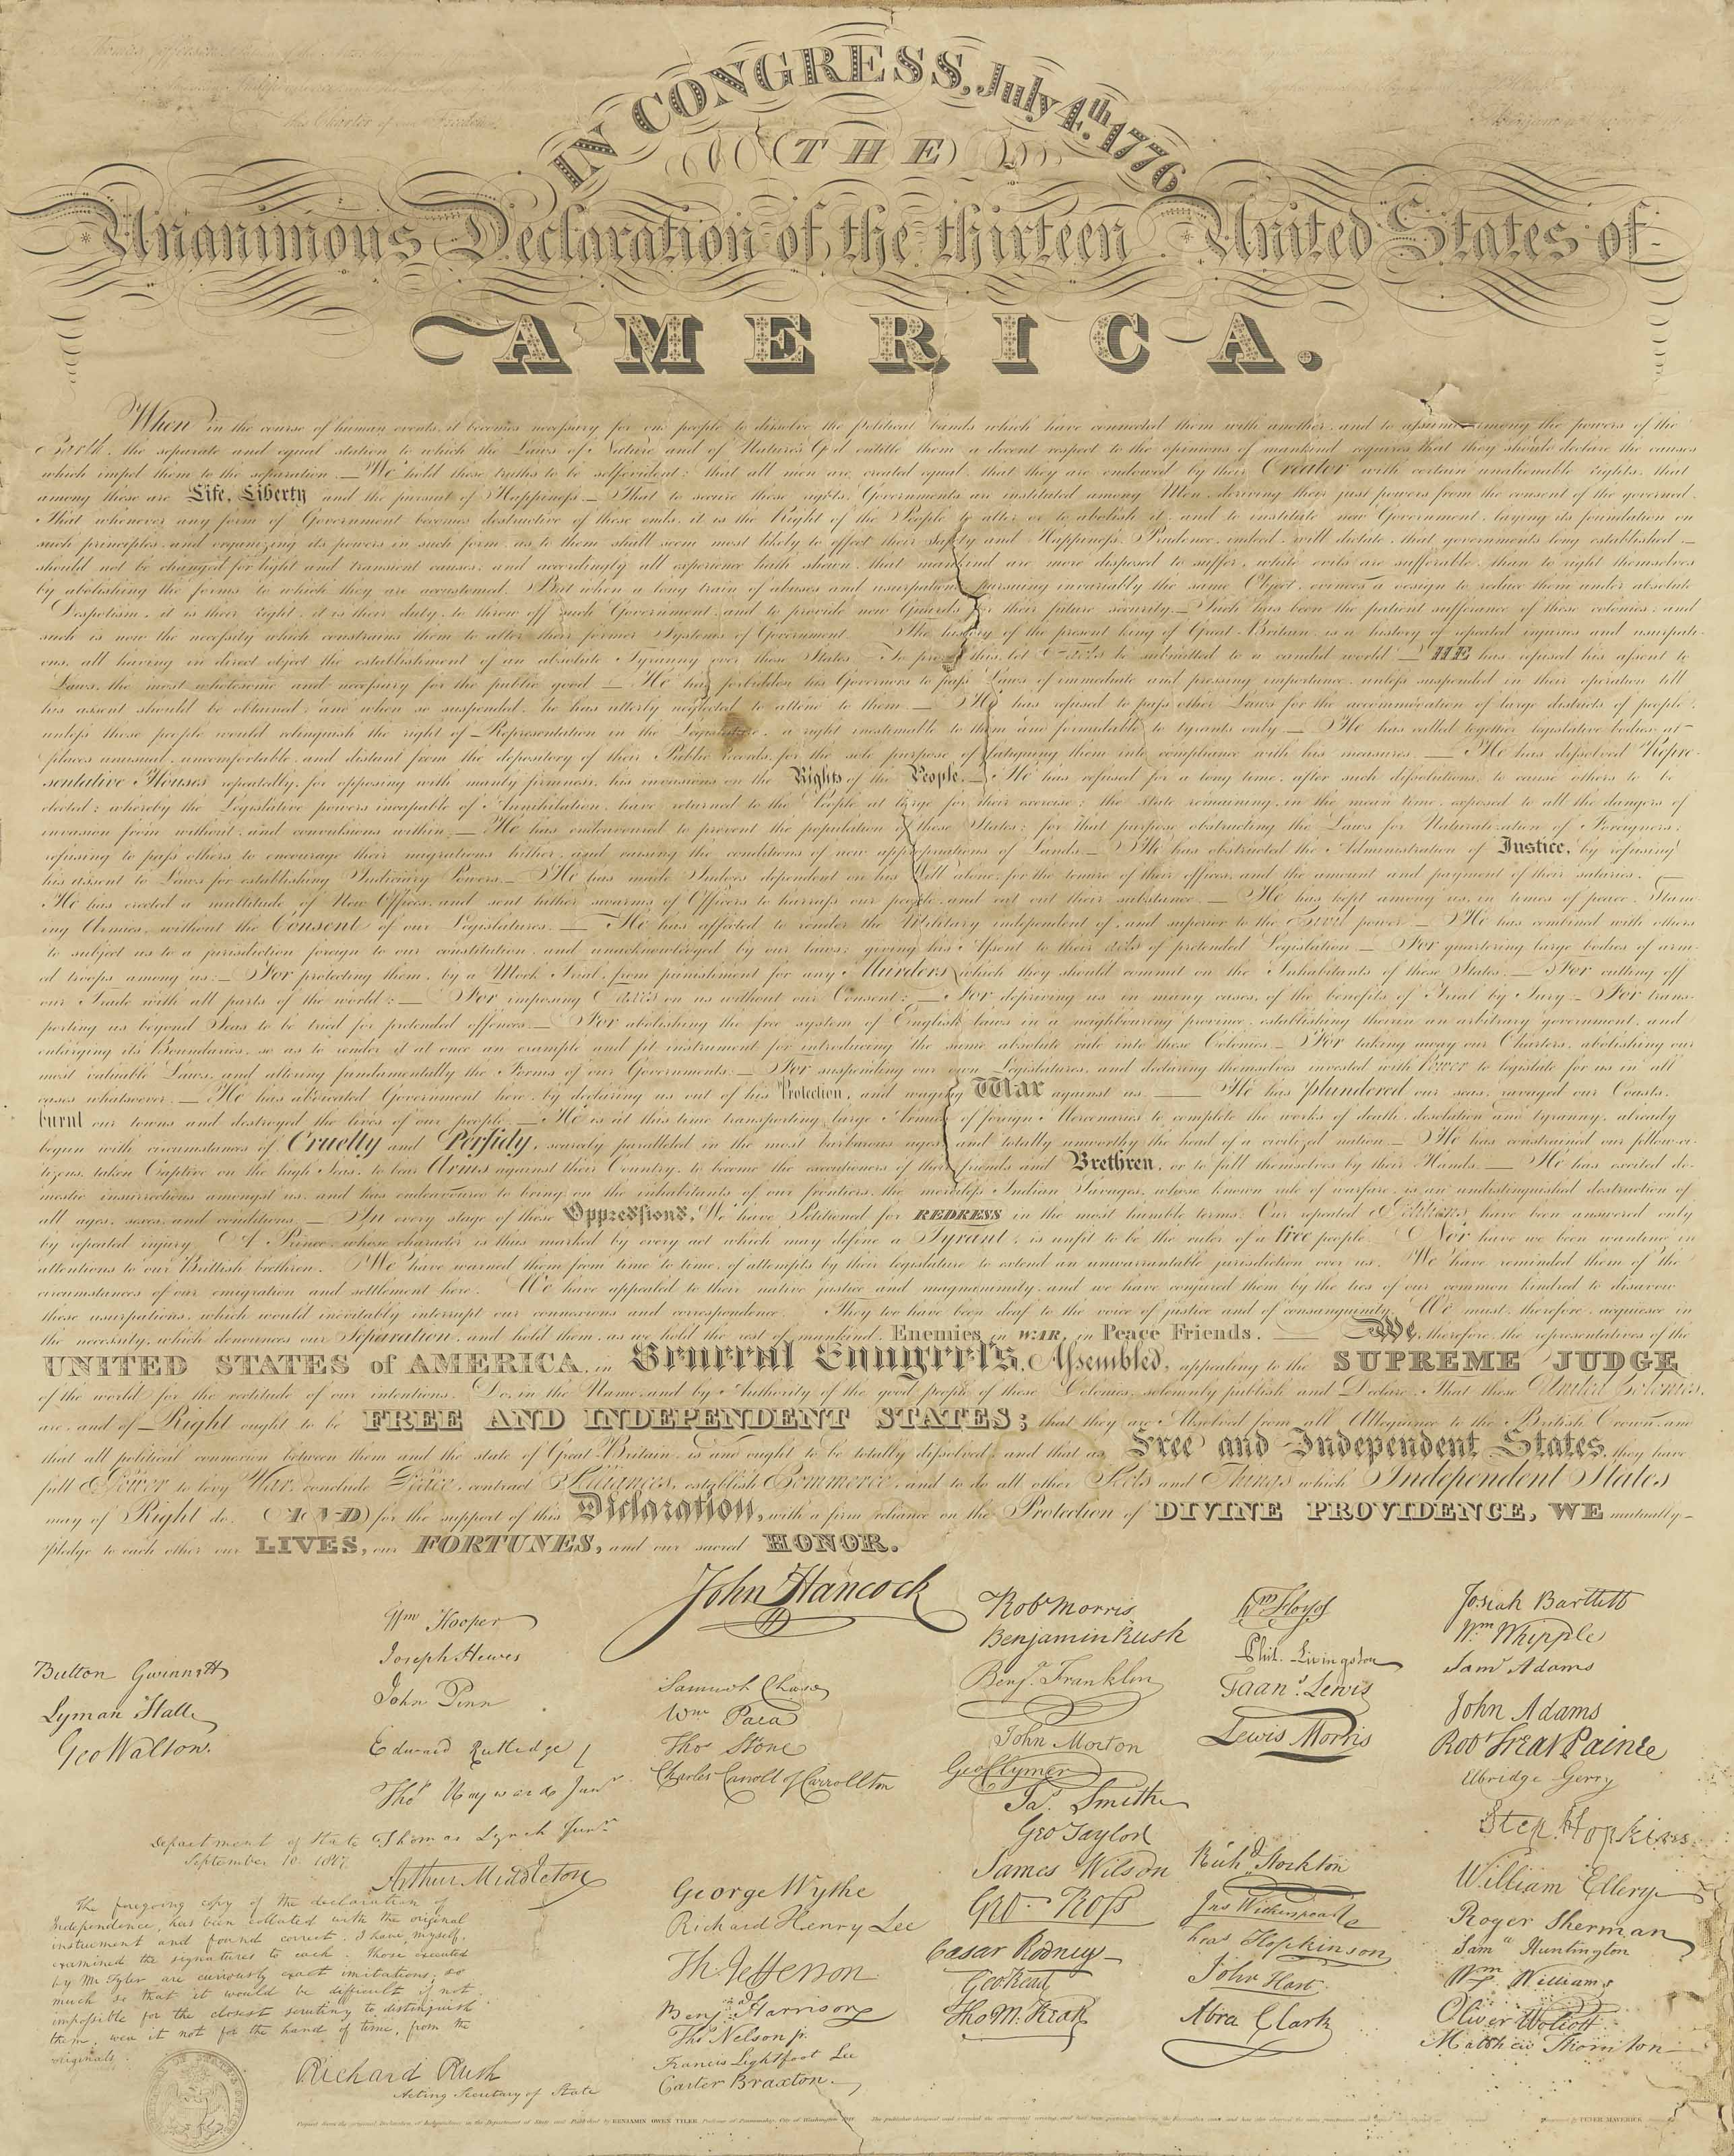 IN CONGRESS, July 4.th 1776
(THE)
Unanimous Declaration of the thirteen United States of
AMERICA.
When in the course of human events, it becomes necessary for one people to dissolve the political bands which have connected them with another, and to assume among the powers of the
Earth, the separate and equal station to which the Laws of Nature and of Nature's God entitle them a decent respect to the opinions of mankind requires that they should declare the causes
which impel them to the separation. — We hold these truths to be selfevident: that all men are created equal, that they are endowed by their Creator with certain unalienable rights, that
among these are Life, Liberty and the pursuit of Happiness. — That to secure these rights, Governments are instituted among Men, deriving their just powers from the consent of the governed.
That whenever any form of Government becomes destructive of these ends, it is the Right of the People to alter or to abolish it, and to institute new Government, laying its foundation on
such principles, and organizing its powers in such form, as to them shall seem most likely to effect their Safety and Happiness. Prudence, indeed, will dictate, that governments long established —
should not be changed for light and transient causes; and accordingly all experience hath shewn, that mankind are more disposed to suffer, while evils are sufferable, than to right themselves
by abolishing the forms to which they are accustomed. But when a long train of abuses and usurpations pursuing invariably the same Object, evinces a design to reduce them under absolute
Despotism, it is their right, it is their duty, to throw off such Government, and to provide new Guards for their future security. — Such has been the patient sufferance of these colonies; and
such is now the necessity which constrains them to alter their former Systems of Government. The history of the present king of Great-Britain is a history of repeated injuries and usurpati-
ons, all having in direct object the establishment of an absolute Tyranny over these States. To prove this, let Facts be submitted to a candid world — HE has refused his assent to
Laws, the most wholesome and necessary for the public good — He has forbidden his Governors to pass Laws of immediate and pressing importance, unless suspended in their operation till
his assent should be obtained; and when so suspended, he has utterly neglected to attend to them. — He has refused to pass other Laws for the accommodation of large districts of people,
unless those people would relinquish the right of Representation in the Legislature, a right inestimable to them and formidable to tyrants only — He has called together legislative bodies at —
places unusual, uncomfortable, and distant from the depository of their Public records, for the sole purpose of fatiguing them into compliance with his measures — He has dissolved Repre-
sentative Houses repeatedly, for opposing with manly firmness, his invasions on the Rights of the People. — He has refused for a long time, after such dissolutions, to cause others to be
elected; whereby the Legislative powers incapable of Annihilation, have returned to the People at large for their exercise; the state remaining, in the mean time, exposed to all the dangers of
invasion from without, and convulsions within. — He has endeavoured to prevent the population of these States; for that purpose obstructing the Laws for Naturalization of Foreigners;
refusing to pass others to encourage their migrations hither, and raising the conditions of new appropriations of Lands. — He has obstructed the Administration of Justice, by refusing
his assent to Laws for establishing Judiciary Powers. — He has made Judges dependent on his Will alone, for the tenure of their offices, and the amount and payment of their salaries.
He has erected a multitude of New Offices, and sent hither swarms of Officers to harrass our people, and eat out their substance. — He has kept among us, in times of peace, Stand
ing Armies, without the Consent of our Legislatures. — He has affected to render the Military independent of, and superior to the Civil power — He has combined with others
to subject us to a jurisdiction foreign to our constitution, and unacknowledged by our laws; giving his Assent to their acts of pretended Legislation — For quartering large bodies of arm-
ed troops among us: — For protecting them, by a Mock Trial, from punishment for any Murders which they should commit on the Inhabitants of these States: — For cutting off
our Trade with all parts of the world: — For imposing Taxes on us without our Consent: — For depriving us in many cases, of the benefits of Trial by Jury — For trans-
porting us beyond Seas to be tried for pretended offences — For abolishing the free system of English laws in a neighbouring province, establishing therein an arbitrary government, and
enlarging its Boundaries, so as to render it at once an example and fit instrument for introducing the same absolute rule into these Colonies — For taking away our Charters, abolishing our
most valuable Laws, and altering fundamentally the Forms of our Governments: — For suspending our own Legislatures, and declaring themselves invested with Power to legislate for us in all
cases whatsoever. — He has abdicated Government here, by declaring us out of his Protection, and waging War against us. — He has plundered our seas, ravaged our Coasts,
burnt our towns and destroyed the lives of our people — He is at this time transporting large Armies of foreign Mercenaries to complete the works of death, desolation and tyranny, already
begun with circumstances of Cruelty and Perfidy, scarcely paralleled in the most barbarous ages, and totally unworthy the head of a civilized nation — He has constrained our fellow-ci-
tizens, taken Captive on the high Seas, to bear Arms against their Country, to become the executioners of their friends and Brethren, or to fall themselves by their Hands. — He has excited do-
mestic insurrections amongst us, and has endeavoured to bring on the inhabitants of our frontiers, the merciless Indian Savages, whose known rule of warfare, is an undistinguished destruction of
all ages, sexes, and conditions. — In every stage of these Oppressions, We have Petitioned for REDRESS in the most humble terms: Our repeated Petitions have been answered only
by repeated injury. A Prince, whose character is thus marked by every act which may define a Tyrant, is unfit to be the ruler of a free people. Nor have we been wanting in
attentions to our British brethren. We have warned them from time to time, of attempts by their legislature to extend an unwarrantable jurisdiction over us. We have reminded them of the
circumstances of our emigration and settlement here. We have appealed to their native justice and magnanimity, and we have conjured them by the ties of our common kindred to disavow
these usurpations, which would inevitably interrupt our connexions and correspondence. They too have been deaf to the voice of justice and of consanguinity. We must, therefore, acquiesce in
the necessity, which denounces our Separation, and hold them, as we hold the rest of mankind, Enemies in WAR, in Peace Friends. — We, therefore, the representatives of the
UNITED STATES of AMERICA, in General Congress, Assembled, appealing to the SUPREME JUDGE
of the world for the rectitude of our intentions, Do, in the Name, and by Authority of the good people of these Colonies, solemnly publish and Declare, That these United Colonies,
are, and of Right ought to be FREE AND INDEPENDENT STATES; that they are Absolved from all Allegiance to the British Crown, and
that all political connexion between them and the state of Great Britain, is and ought to be totally dissolved; and that as Free and Independent States, they have
full Power to levy War, conclude Peace, contract Alliances, establish Commerce, and to do all other Acts and Things which Independent States
may of Right do. (AND) for the support of this Declaration, with a firm reliance on the Protection of DIVINE PROVIDENCE, WE mutually —
pledge to each other our LIVES, our FORTUNES, and our sacred HONOR.
John Hancock
Button Gwinnett
Lyman Hall
Geo Walton.
Wm Hooper
Joseph Hewes
John Penn
Edward Rutledge
Thos Heyward Junr
Thomas Lynch Junr
Arthur Middleton
Samuel Chase
Wm Paca
Thos Stone
Charles Carroll of Carrollton
George Wythe
Richard Henry Lee
Th Jefferson
Benj Harrison
Thos Nelson jr.
Francis Lightfoot Lee
Carter Braxton.
Robt Morris
Benjamin Rush
Benja. Franklin
John Morton
Geo Clymer
Jas. Smith
Geo Taylor
James Wilson
Geo. Ross
Caesar Rodney
Geo Read
Tho M. Kean
Wm Floyd
Phil. Livingston
Frans. Lewis
Lewis Morris
Richd Stockton
Jno Witherspoon
Fras Hopkinson
John Hart
Abra Clark
Josiah Bartlett
Wm Whipple
Saml Adams
John Adams
Robt Treat Paine
Elbridge Gerry
Step Hopkins
William Ellery
Roger Sherman
Saml Huntington
Wm Williams
Oliver Wolcott
Matthew Thornton
Department of State
September 10. 1817.
The foregoing copy of the declaration of
Independence, has been collated with the original
instrument and found correct. I have, myself,
examined the signatures to each. Those executed
by Mr Tyler are curiously exact imitations; so
much so that it would be difficult if not
impossible for the closest scrutiny to distinguish
them, were it not for the hand of time, from the
originals.
Richard Rush
Acting Secretary of State
BENJAMIN OWEN TYLER
PETER MAVERICK